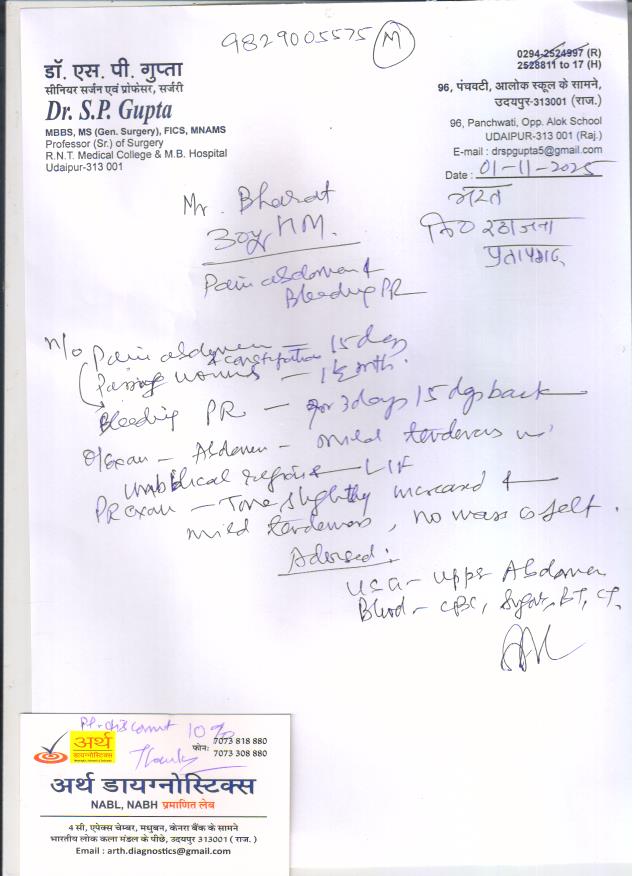 9829005575 M
डॉ. एस. पी. गुप्ता
सीनियर सर्जन एवं प्रोफेसर, सर्जरी
Dr. S.P. Gupta
MBBS, MS (Gen. Surgery), FICS, MNAMS
Professor (Sr.) of Surgery
R.N.T. Medical College & M.B. Hospital
Udaipur-313 001
0294-2524997 (R)
2528811 to 17 (H)
96, पंचवटी, आलोक स्कूल के सामने,
उदयपुर-313001 (राज.)
96, Panchwati, Opp. Alok School
UDAIPUR-313 001 (Raj.)
E-mail : drspgupta5@gmail.com
Date : 01-11-2025
भरत
Mr. Bharat
30y M.
Pain abdomen &
Bleeding PR
H/o Pain abdomen = 15 days
& constipation
Passing — 1 month.
Bleeding PR — for 3 days 15 days back
O/Exam — Abdomen — mild tenderness in
umbilical region & LIF
PR exam — Tone slightly increased &
mild tenderness, no mass is felt.
Advised:
USG — Upper Abdomen
Blood — CBC, Sugar, BT, CT,
Pl. discount 10%
Thanks
अर्थ
फोन: 7073 818 880
7073 308 880
अर्थ डायग्नोस्टिक्स
NABL, NABH प्रमाणित लेब
4 सी, एपेक्स चेम्बर, मधुबन, केनरा बैंक के सामने
भारतीय लोक कला मंडल के पीछे, उदयपुर 313001 ( राज. )
Email : arth.diagnostics@gmail.com